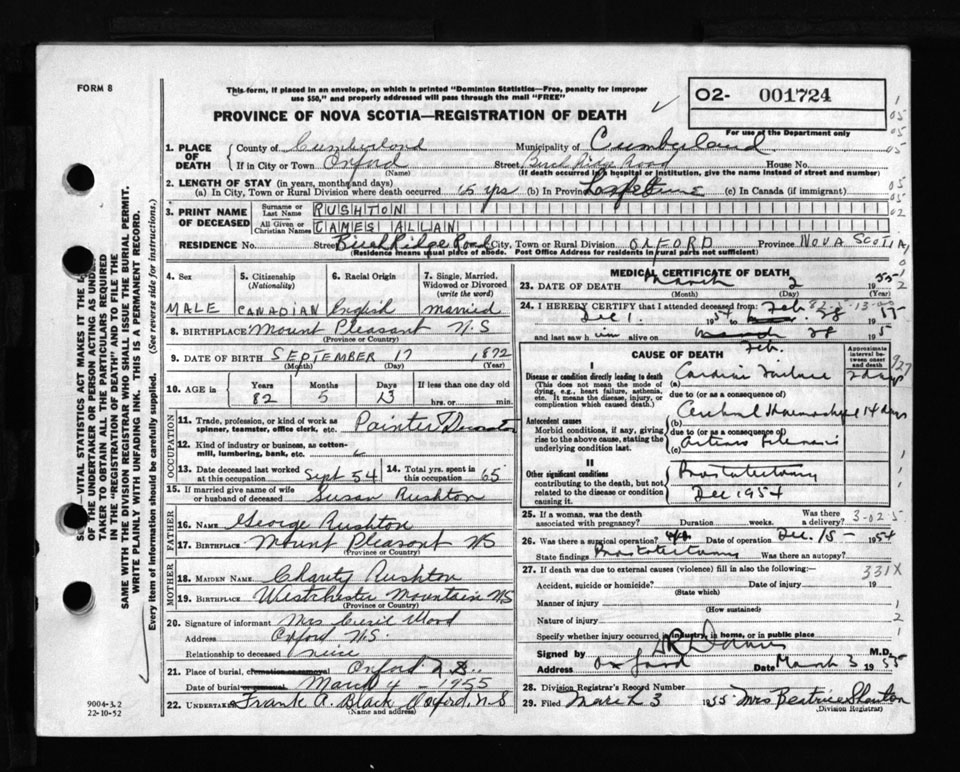 FORM 8
This form, if placed in an envelope, on which is printed "Dominion Statistics—Free, penalty for improper
use $50," and properly addressed will pass through the mail "FREE"
O2- 001724
For use of the Department only
PROVINCE OF NOVA SCOTIA—REGISTRATION OF DEATH
1. PLACE OF DEATH
County of Cumberland Municipality of Cumberland
If in City or Town Oxford Street Birch Ridge Road House No.
(Name) (If death occurred in a hospital or institution, give the name instead of street and number)
2. LENGTH OF STAY (in years, months and days)
(a) In City, Town or Rural Division where death occurred 65 yrs (b) In Province Lifetime (c) In Canada (if immigrant)
3. PRINT NAME OF DECEASED
Surname or Last Name RUSHTON
All Given or Christian Names JAMES ALLAN
RESIDENCE No. Street Birch Ridge Road City, Town or Rural Division OXFORD Province NOVA SCOTIA
(Residence means usual place of abode. Post Office Address for residents in rural parts not sufficient)
4. Sex
MALE
5. Citizenship (Nationality)
CANADIAN
6. Racial Origin
English
7. Single, Married, Widowed or Divorced (write the word)
married
8. BIRTHPLACE Mount Pleasant N.S
(Province or Country)
9. DATE OF BIRTH SEPTEMBER 17 1872
(Month) (Day) (Year)
10. AGE in
Years Months Days If less than one day old
82 5 13 hrs. or min.
OCCUPATION
11. Trade, profession, or kind of work as spinner, teamster, office clerk, etc. Painter & Decorator
12. Kind of industry or business, as cotton-mill, lumbering, bank, etc.
13. Date deceased last worked at this occupation Sept 54
14. Total yrs. spent in this occupation 65
15. If married give name of wife or husband of deceased Susan Rushton
FATHER
16. Name George Rushton
17. Birthplace Mount Pleasant NS
(Province or Country)
MOTHER
18. Maiden Name Charity Rushton
19. Birthplace Westchester Mountain NS
(Province or Country)
20. Signature of informant Mrs Cecil Wood
Address Oxford N.S.
Relationship to deceased neice
21. Place of burial, cremation or removal Oxford N.S.
Date of burial or removal March 4 - 1955
22. Undertaker Frank A. Black Oxford, N.S
(Name and address)
MEDICAL CERTIFICATE OF DEATH
23. DATE OF DEATH March 2 1955
(Month) (Day) (Year)
24. I HEREBY CERTIFY that I attended deceased from:
Dec 1. 1954 to Feb. 28 1955
and last saw him alive on March Feb. 28 195
CAUSE OF DEATH
Approximate interval between onset and death
I
Disease or condition directly leading to death
(This does not mean the mode of dying, e.g., heart failure, asthenia, etc. It means the disease, injury, or complication which caused death.)
(a) Cardiac Failure 2 days
due to (or as a consequence of)
Antecedent causes
Morbid conditions, if any, giving rise to the above cause, stating the underlying condition last.
(b) Cerebral Haemorrhage 14 days
due to (or as a consequence of)
(c) Arterio Sclerosis
II
Other significant conditions
contributing to the death, but not related to the disease or condition causing it.
Prostatectomy
Dec 1954
25. If a woman, was the death associated with pregnancy? Duration weeks. Was there a delivery? 3-02-5
26. Was there a surgical operation? Date of operation Dec. 15 - 1954
State findings Prostatectomy Was there an autopsy?
27. If death was due to external causes (violence) fill in also the following:— 331X
Accident, suicide or homicide? Date of injury 19
(State which)
Manner of injury
(How sustained)
Nature of injury
Specify whether injury occurred in industry, in home, or in public place
Signed by M.D.
Address Oxford Date March 3 1955
28. Division Registrar's Record Number
29. Filed March 3 1955 Mrs Beatrice
(Division Registrar)
9004-3.2
22-10-52
VITAL STATISTICS ACT MAKES IT THE
OF THE UNDERTAKER OR PERSON ACTING AS UNDER
TAKER TO OBTAIN ALL THE PARTICULARS REQUIRED
IN THE "REGISTRATION OF DEATH" AND TO FILE THE
SAME WITH THE DIVISION REGISTRAR WHO SHALL ISSUE THE BURIAL PERMIT.
WRITE PLAINLY WITH UNFADING INK. THIS IS A PERMANENT RECORD.
Every item of information should be carefully supplied. (See reverse side for instructions.)